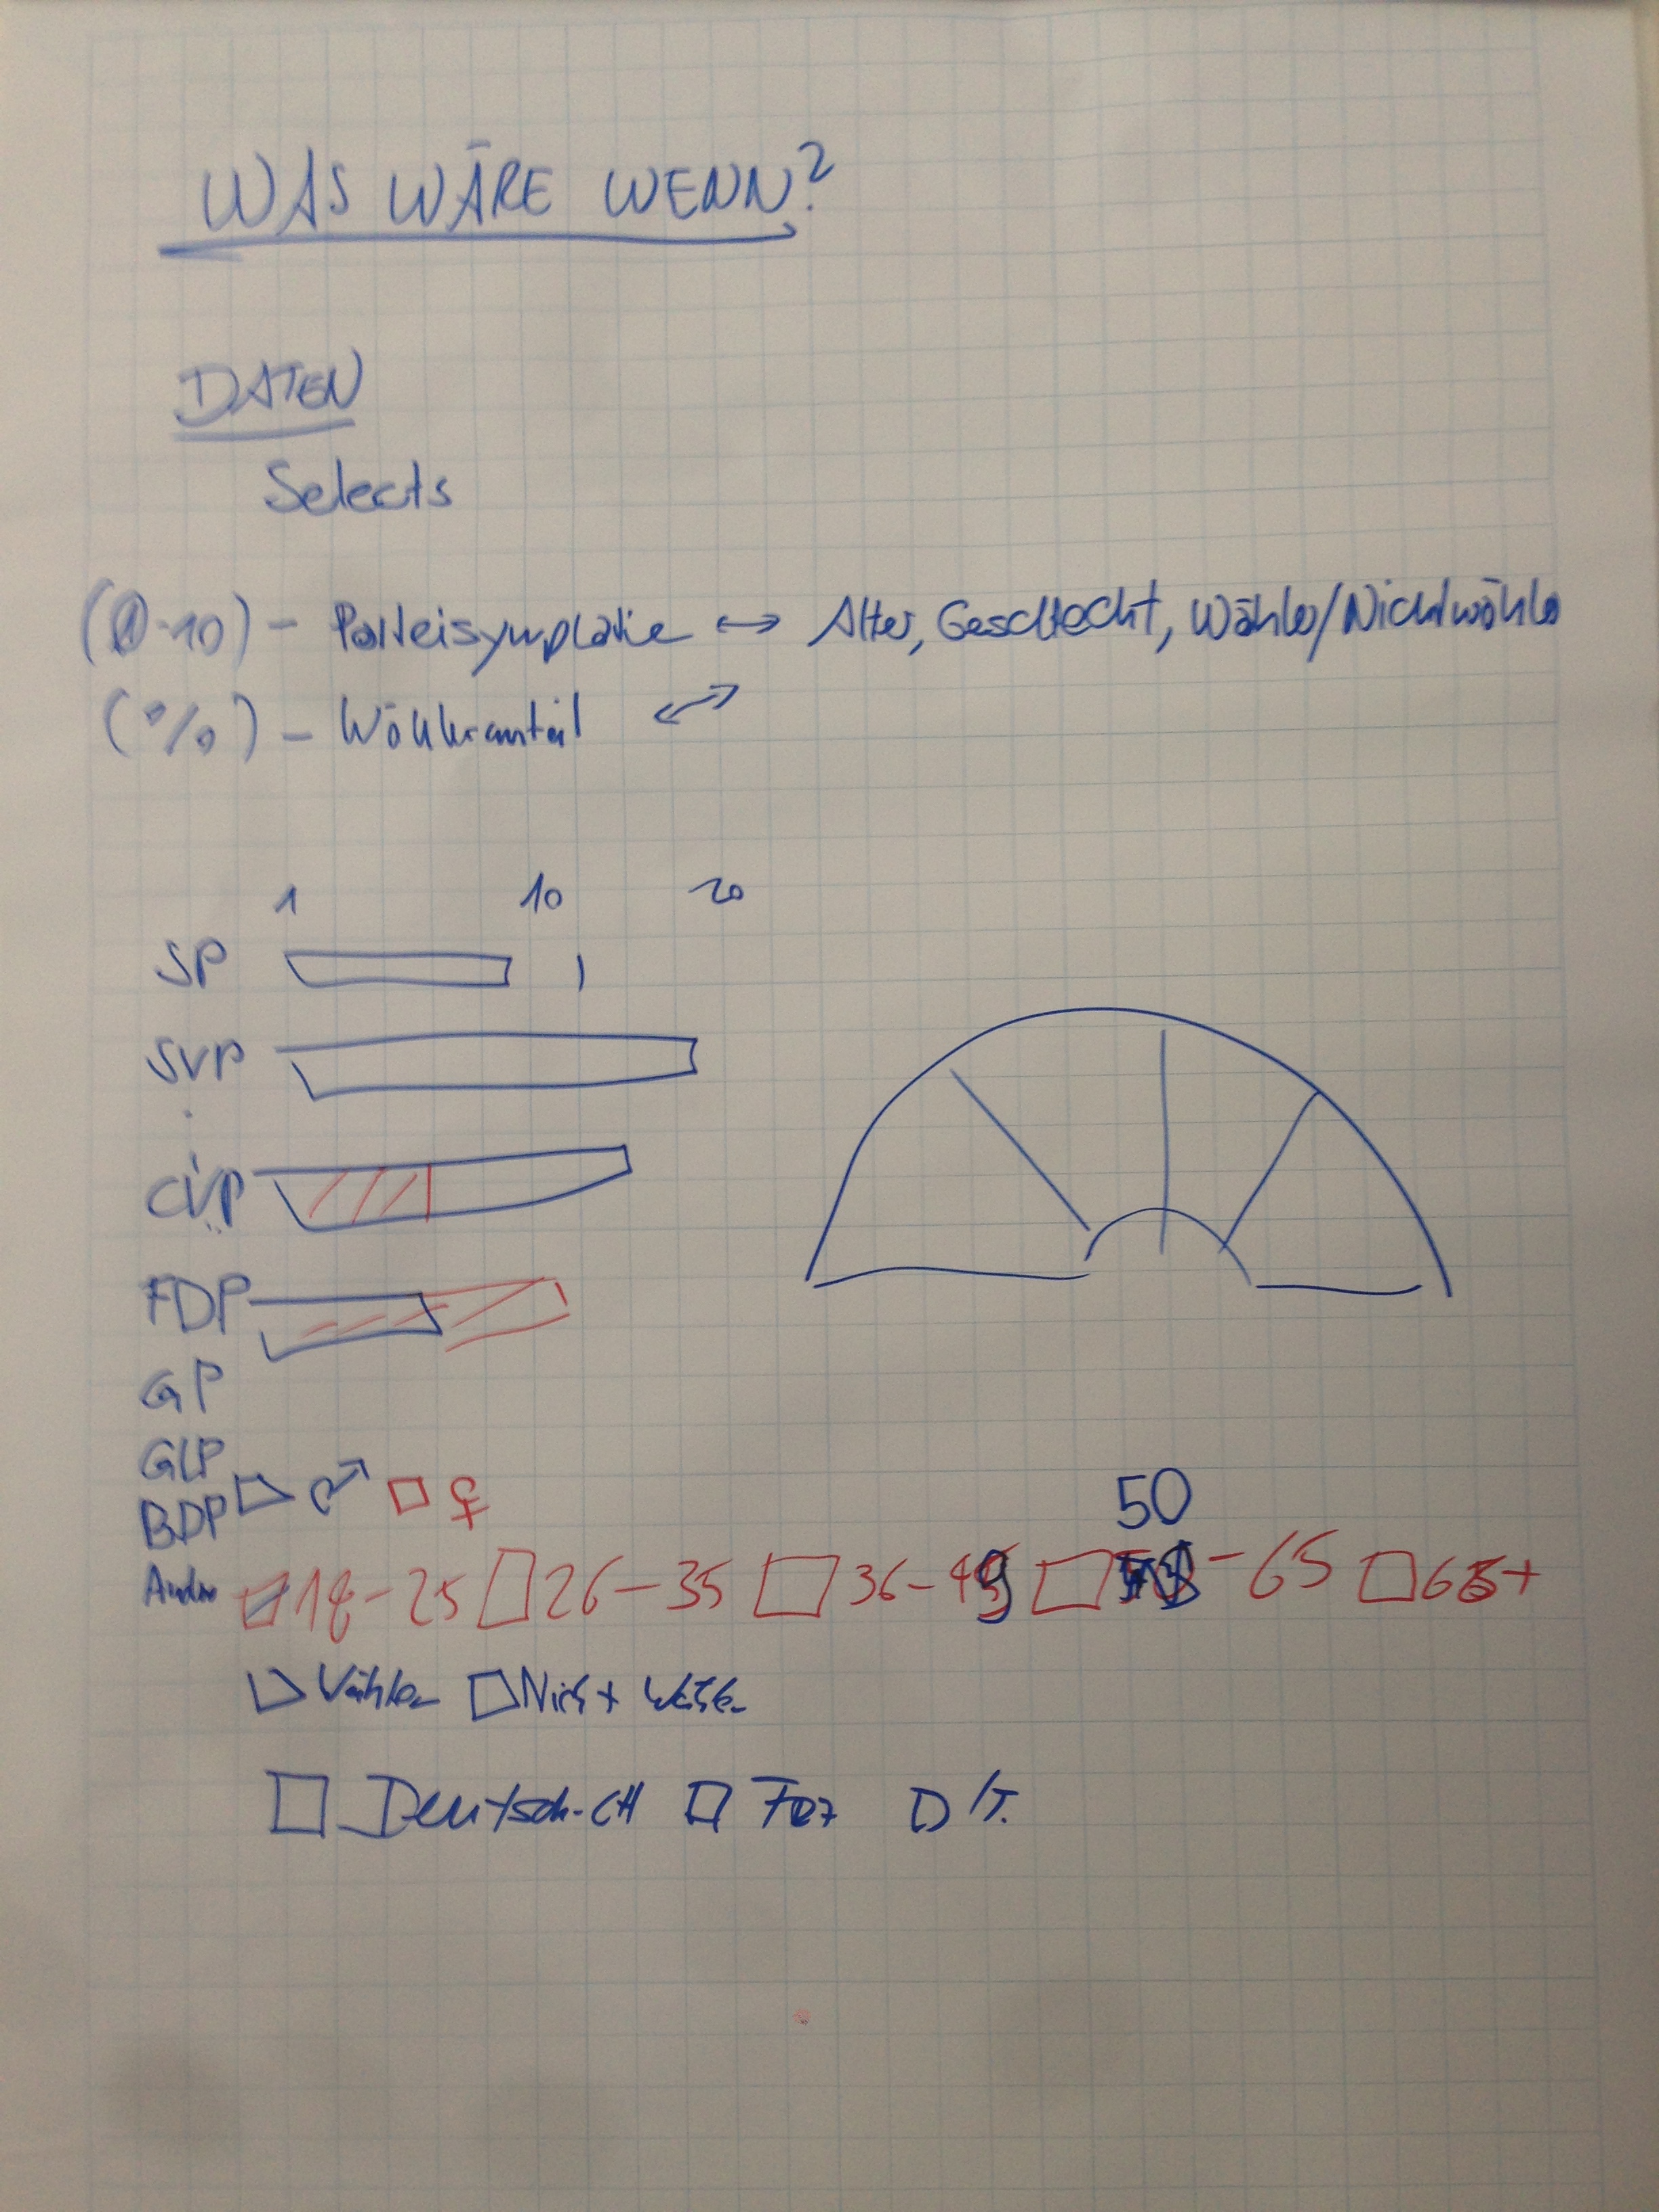 WAS WÄRE WENN?
DATEN
Selects
(0-10) - Parteisympatie ↔ Alter, Geschlecht, Wähler/Nichtwähler
(%) - Wähleranteil ↔
1 10 20
SP
SVP
CVP
FDP
GP
GLP
BDP ☐ ♂ ☐ ♀
50
Andre ☐ 18-25 ☐ 26-35 ☐ 36-49 ☐ -65 ☐ 65+
☐ Wähler ☐ Nicht Wähler
☐ Deutsch-CH ☐ Frz ☐ IT.